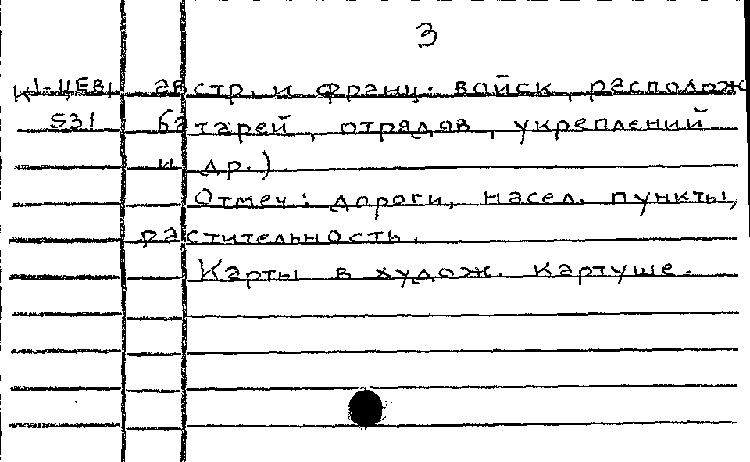 3
австр. и франц. войск, располож
531 батарей, отрядов, укреплений
и др.)
Отмеч: дороги, насел. пункты,
растительность.
Карты в худож. картуше.